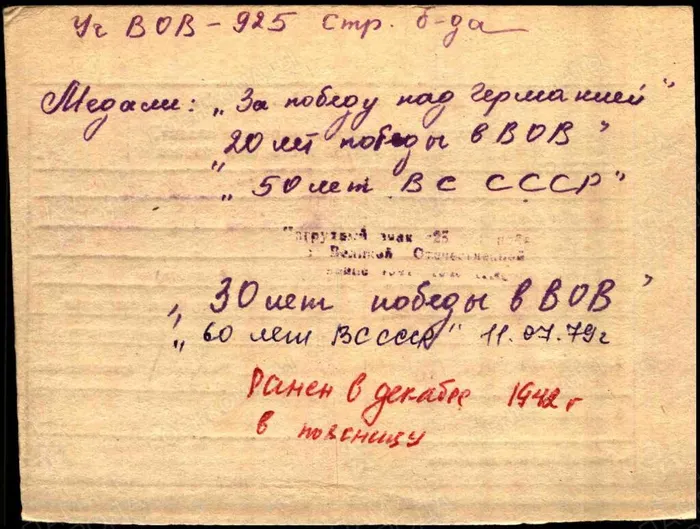 Уч ВОВ - 925 Стр. б-да
Медали: „За победу над Германией"
„20 лет победы в ВОВ"
„50 лет ВС СССР"
Нагрудный знак 25
Великой Отечественной
войне
„30 лет победы в ВОВ"
„60 лет ВС СССР" 11.07.79г
Ранен в декабре 1942 г
в поясницу